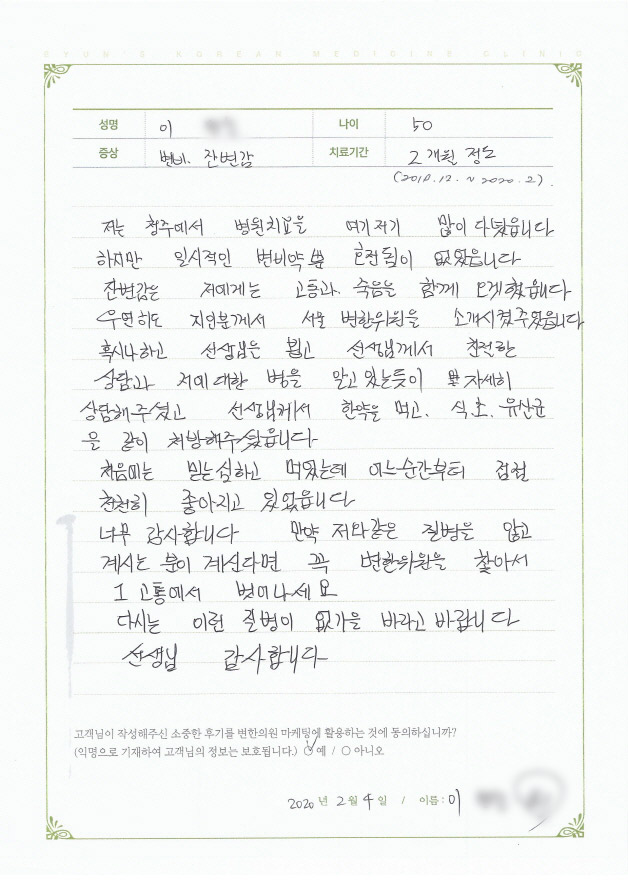 BYUN'S KOREAN MEDICINE CLINIC
성명 이 나이 50
증상 변비. 잔변감 치료기간 2개월 정도
(2019.12. ~ 2020.2).
저는 청주에서 병원치료을 여기저기 많이 다녔읍니다
하지만 일시적인 변비약 뿐 호전됨이 없었읍니다
잔변감은 저에게는 고통과. 죽음을 함께 오게했읍니다
우연히도 지인분께서 서울 변한위원을 소개시켰주었읍니다
혹시나하고 선생님은 뵙고 선생님께서 친절한
상담과 저에대한 병을 알고있는듯이 자세히
상담해주셨고 선생님께서 한약을 먹고. 식초. 유산균
을 같이 처방해주셨읍니다
처음에는 믿는심하고 먹었는데 어느순간부터 점점
천천히 좋아지고 있었읍니다
너무 감사합니다 만약 저와같은 질병을 앓고
계시는 분이 계신다면 꼭 변한의원을 찾아서
그 고통에서 벗어나세요
다시는 이런 질병이 없기을 바라고 바랍니다
선생님 감사합니다
고객님이 작성해주신 소중한 후기를 변한의원 마케팅에 활용하는 것에 동의하십니까?
(익명으로 기재하여 고객님의 정보는 보호됩니다.) ○ 예 / ○ 아니오
2020 년 2 월 4 일 / 이름 : 이